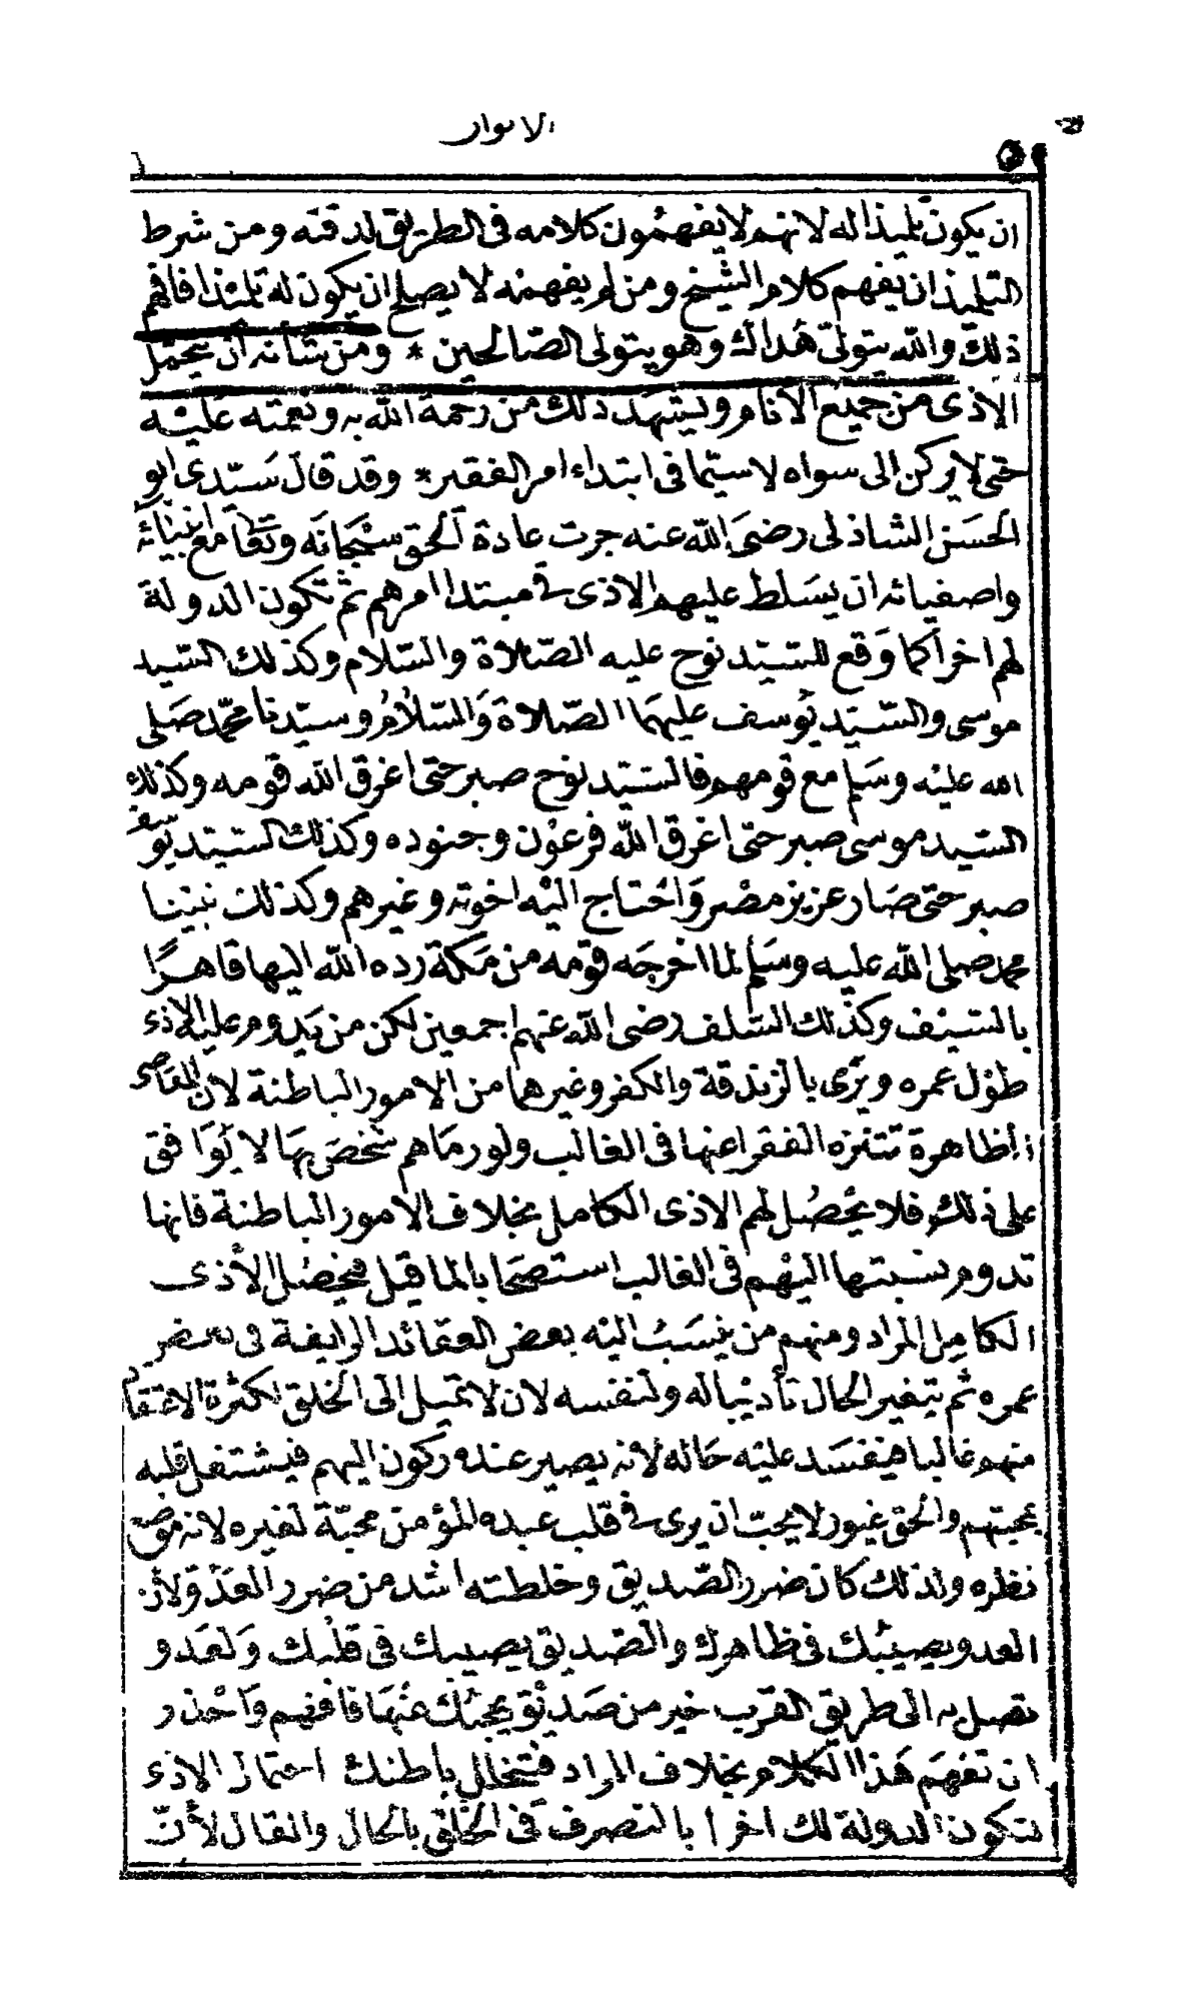 الانوار
ان يكون تلميذا له لانهم لا يفهمون كلامه فى الطريق لدقته ومن شرط
التلميذ ان يفهم كلام الشيخ ومن لم يفهمه لا يصلح ان يكون له تلميذا فافهم
ذلك والله يتولى هداك وهو يتولى الصالحين * ومن شأنه ان يتحمل
الاذى من جميع الانام ويشهد ذلك من رحمة الله به ونعمته عليه
حتى لا يركن الى سواه لاسيما فى ابتداء امر الفقير * وقد قال سيدى ابو
الحسن الشاذلى رضى الله عنه جرت عادة الحق سبحانه وتعا مع انبيائه
واصفيائه ان يسلط عليهم الاذى فى مبتدا امرهم ثم تكون الدولة
لهم اخرا كما وقع للسيد نوح عليه الصلاة والسلام وكذلك السيد
موسى والسيد يوسف عليهما الصلاة والسلام وسيدنا محمد صلى
الله عليه وسلم مع قومهم فالسيد نوح صبر حتى اغرق الله قومه وكذلك
السيد موسى صبر حتى اغرق الله فرعون وجنوده وكذلك السيد يوسف
صبر حتى صار عزيز مصر واحتاج اليه اخوته وغيرهم وكذلك نبينا
محمد صلى الله عليه وسلم لما اخرجه قومه من مكة رده الله اليها قاهرا
بالسيف وكذلك السلف رضى الله عنهم اجمعين لكن من يدوم عليه الاذى
طول عمره ويرمى بالزندقة والكفر وغيرهما من الامور الباطنة لان المعاصى
الظاهرة تتنزه الفقرا عنها فى الغالب ولو رماهم شخص بها لا يوافق
على ذلك فلا يحصل لهم الاذى الكامل بخلاف الامور الباطنة فانها
تدوم نسبتها اليهم فى الغالب استصحابا لما قيل فيحصل الأذى
الكامل المراد ومنهم من ينسب اليه بعض العقائد الزايغة فى بعض
عمره ثم يتغير الحال تأديبا له ولنفسه لان لا تميل الى الخلق لكثرة الاعتقاد
منهم غالبا فيفسد عليه حاله لانه يصير عنده ركون اليهم فيشتغل قلبه
بمحبتهم والحق غيور لا يحب ان يرى فى قلب عبده المؤمن محبة لغيره لانه موضع
نظره ولذلك كان ضرر الصديق وخلطته اشد من ضرر العدو لأن
العدو يصيبك فى ظاهرك والصديق يصيبك فى قلبك ولعدو
تصل به الى طريق القرب خير من صديق يحجبك عنها فافهم واحذر
ان تفهم هذا الكلام بخلاف المراد فيتخلل باطنك احتمال الاذى
لتكون الدولة لك اخرا بالتصرف فى الخلق بالحال والمقال لأنّ